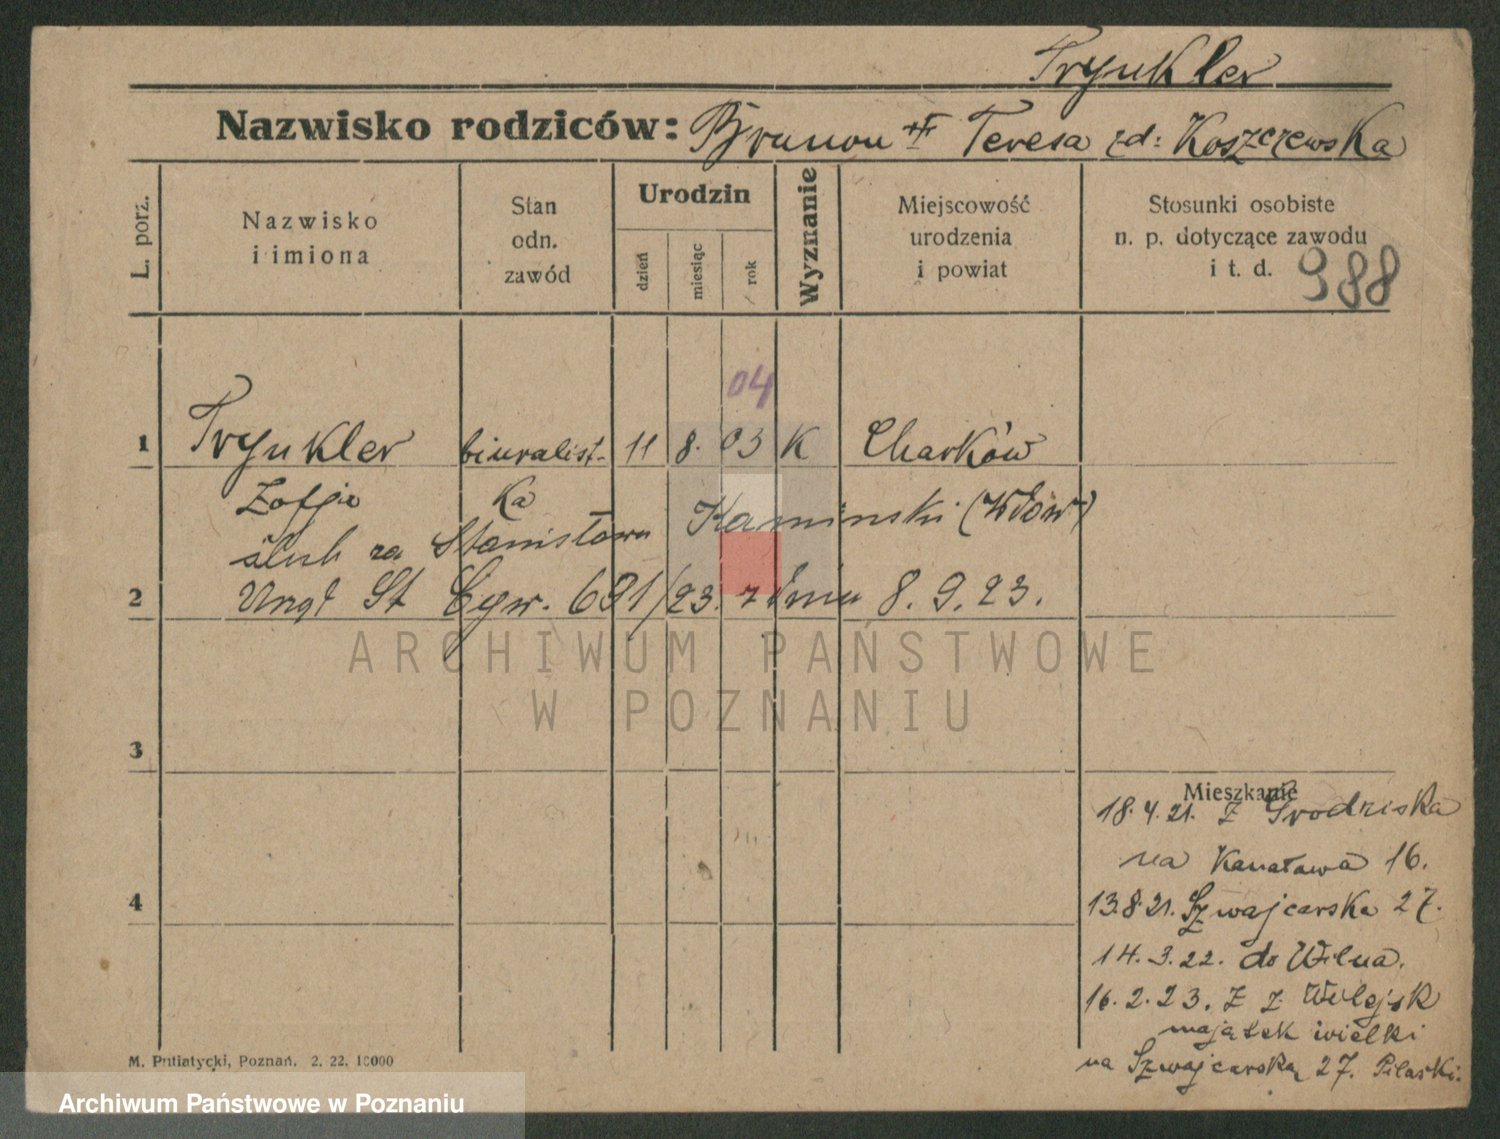 Trynkler
Nazwisko rodziców: Brunon + Teresa zd: Koszczewska
L. porz.
Nazwisko
i imiona
Stan
odn.
zawód
Urodzin
dzień
miesiąc
rok
Wyznanie
Miejscowość
urodzenia
i powiat
Stosunki osobiste
n. p. dotyczące zawodu
i t. d.
988
04
1 Trynkler biuralist- 11 8. 03 K Charków
Zofja ka
ślub za Stanisława Kaminski (Włów)
2 Urząd St Cyw. 691/23. z dniu 8. 9. 23.
ARCHIWUM PAŃSTWOWE
W POZNANIU
3
Mieszkanie
18. 4. 21. z Grodziska
na Kanałowa 16.
4
13.8.21. Szwajcarska 27.
14. 3. 22. do Wilna.
16. 2. 23. z Wilejsk
majątek wielki
na Szwajcarską 27. Pilaski.
M. Putiatycki, Poznań. 2. 22. 10000
Archiwum Państwowe w Poznaniu